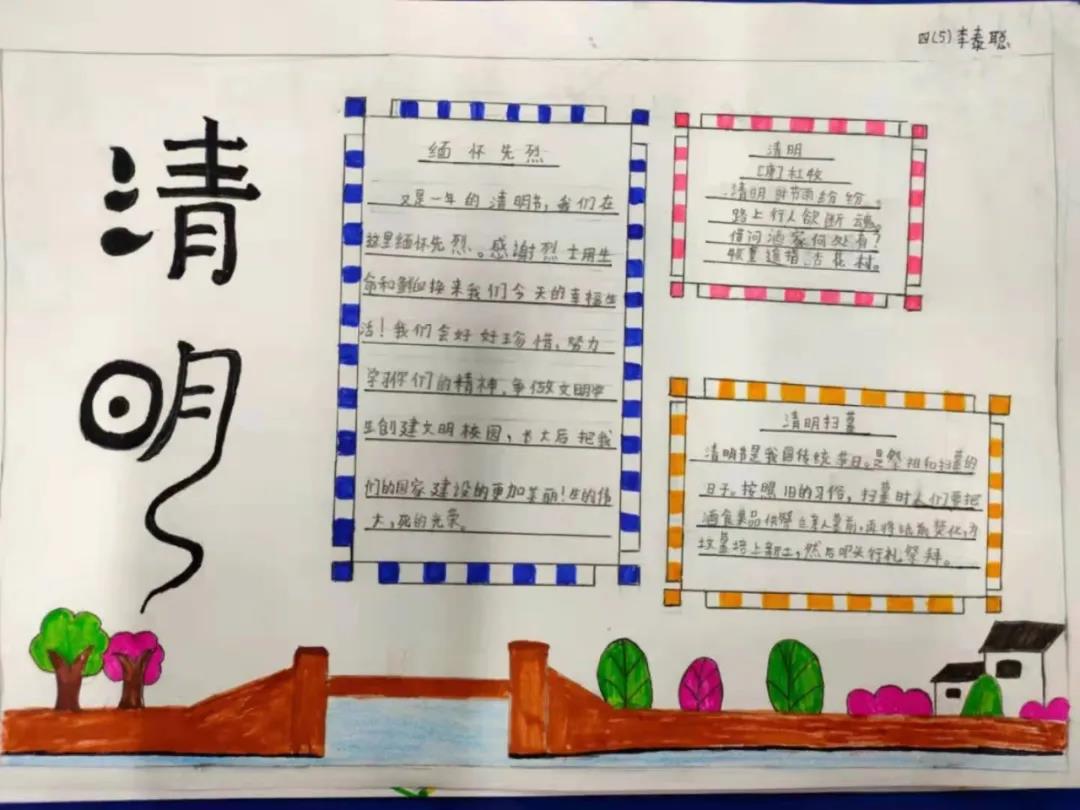 四(5)李泰聪
清明
缅怀先烈
又是一年的清明节,我们在
这里缅怀先烈、。感谢烈士用生
命和鲜血换来我们今天的幸福生
活!我们会好好珍惜,努力
学习你们的精神,争做文明学
生创建文明校园,长大后把我
们的国家建设的更加美丽!生的伟
大,死的光荣。
清明
[唐]杜牧
清明时节雨纷纷。
路上行人欲断魂。
借问酒家何处有?
牧童遥指杏花村。
清明扫墓
清明节是我国传统节日。是祭祖和扫墓的
日子。按照旧的习俗,扫墓时人们要把
酒食果品供祭在亲人墓前,再将纸钱焚化,为
坟墓培上新土,然后叩头行礼祭拜。